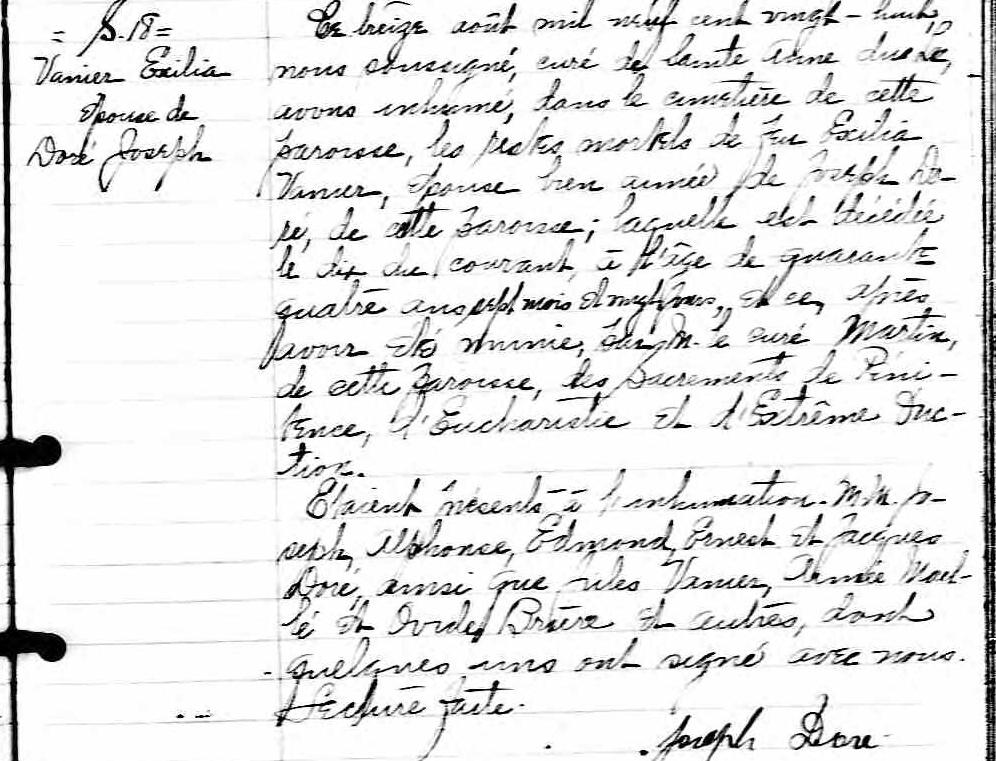 = S.18 =
Vanier Exilia
épouse de
Doré Joseph
Le treize août mil neuf cent vingt-huit,
nous soussigné, curé de Sainte Anne
avons inhumé, dans le cimetière de cette
paroisse, les restes mortels de feu Exilia
Vanier, épouse bien aimée de Joseph Do-
ré, de cette paroisse; laquelle est décédée
le dix du courant, à l'âge de quarante
quatre ans sept mois et vingt jours, et ce, après
avoir été munie, par M. le curé Martin,
de cette paroisse, des sacrements de Péni-
tence, d'Eucharistie et d'Extrême Onc-
tion.
Etaient présents à l'inhumation. M.M. Jo-
seph, Alphonse, Edmond, Ernest et Jacques
Doré, ainsi que Jules Vanier, Aimée Mail-
lé et Brière et autres, dont
quelques uns ont signé avec nous.
Lecture faite.
Joseph Dore